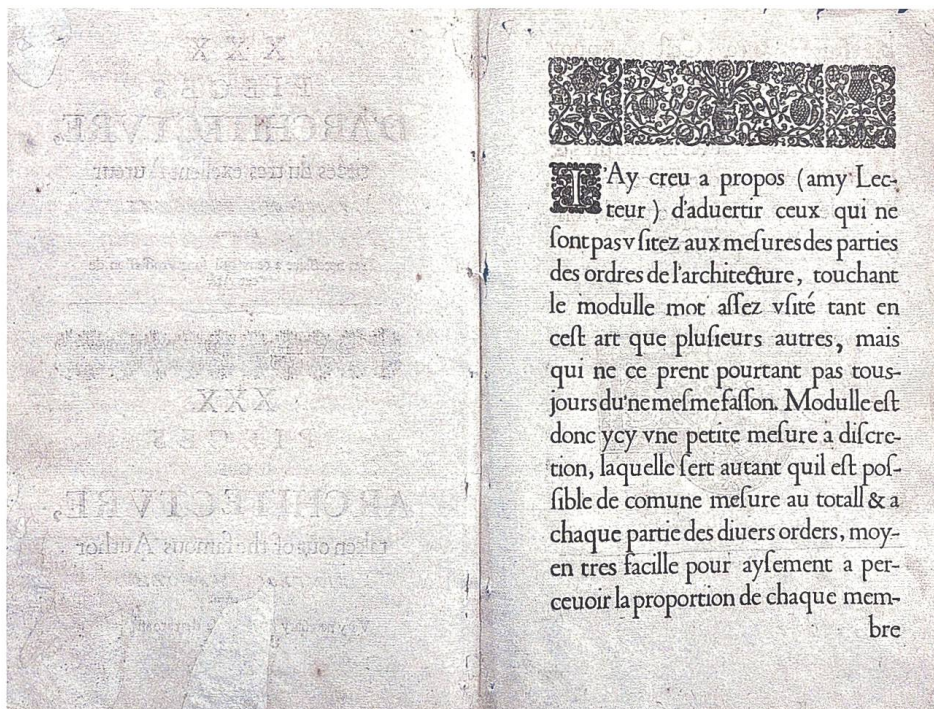 XXX
PIECES
D'ARCHITECTVRE,
XXX.
PIECES
ARCHITECTVRE,
taken out of the famous Author
I'Ay creu a propos (amy Lec-
teur) d'aduertir ceux qui ne
ſont pas v ſitez aux meſures des parties
des ordres de l'architecture, touchant
le modulle mot aſſez vſité tant en
ceſt art que pluſieurs autres, mais
qui ne ce prent pourtant pas tous-
jours du'ne meſme faſſon. Modulle eſt
donc ycy vne petite meſure a diſcre-
tion, laquelle ſert autant quil eſt poſ-
ſible de comune meſure au totall & a
chaque partie des diuers orders, moy-
en tres facille pour ayſement a per-
ceuoir la proportion de chaque mem-
bre